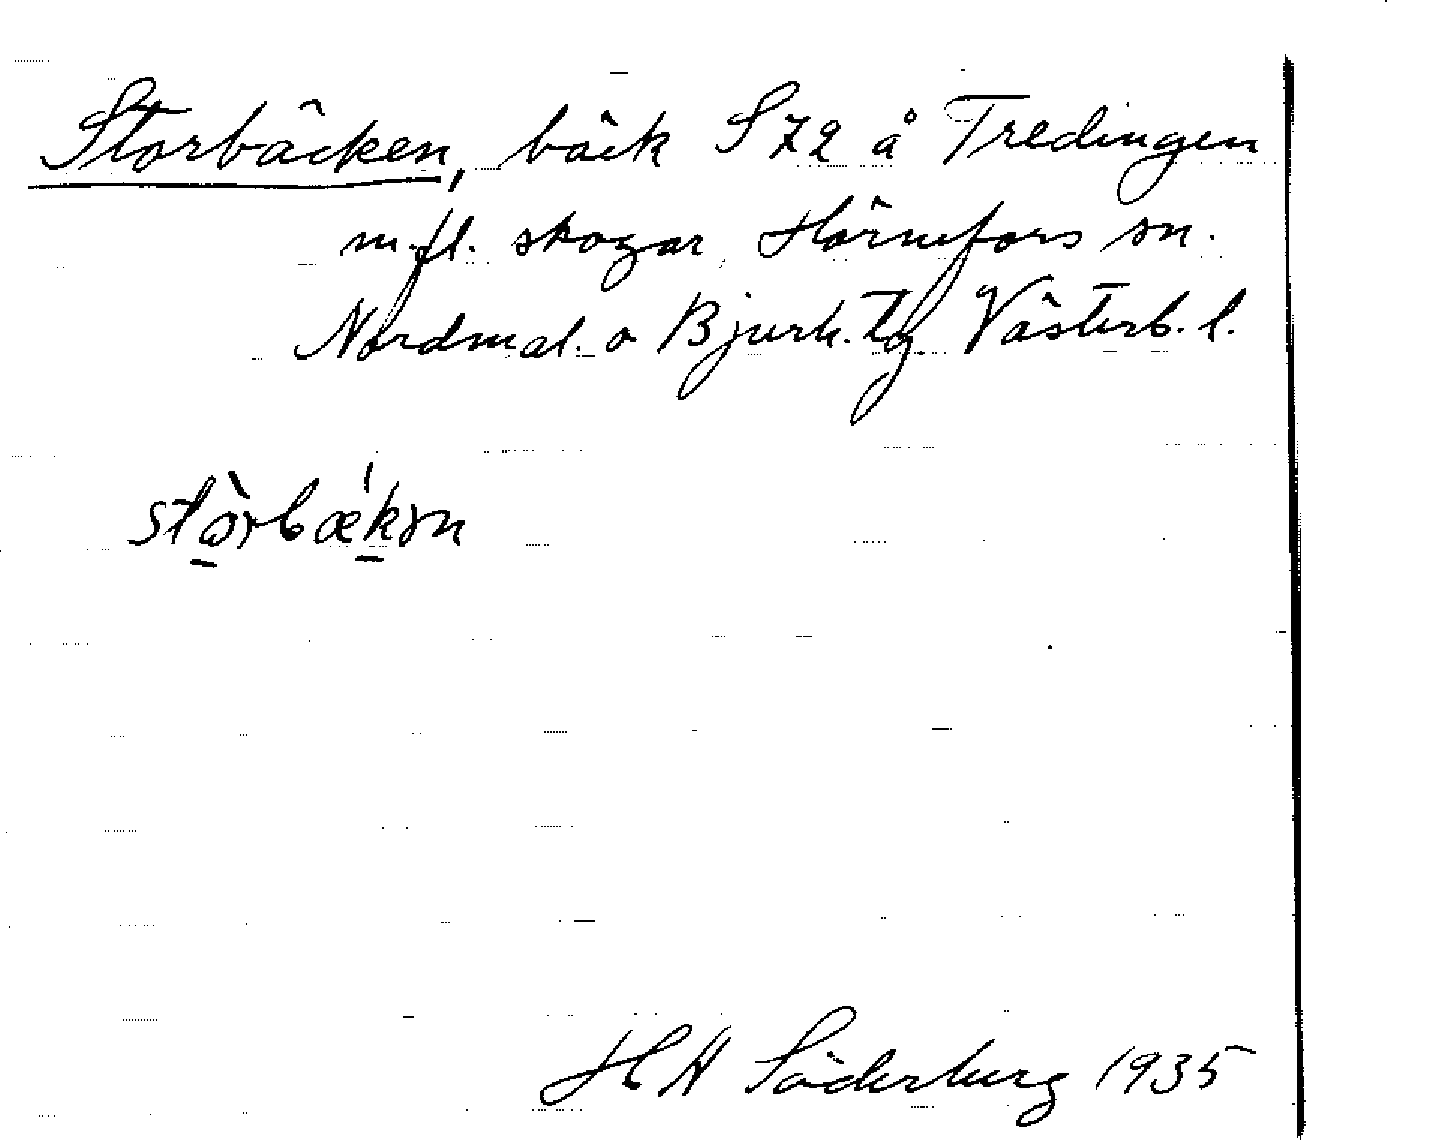 Storbäcken, bäck S 72 å Tredingen
m.fl. skogar, Hörnefors sn.
Nordmal. o Bjurh. tg Västerb. l.
stòrbǽkən
H H Söderberg 1935